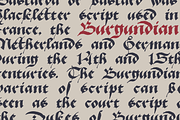 Bastarda or bastard was
blackletter script used in
France, the Burgundian
Netherlands and German
during the 14th and 15th
centuries. The Burgundian
variant of script can be
seen as the court script
the Dukes of Burgundy